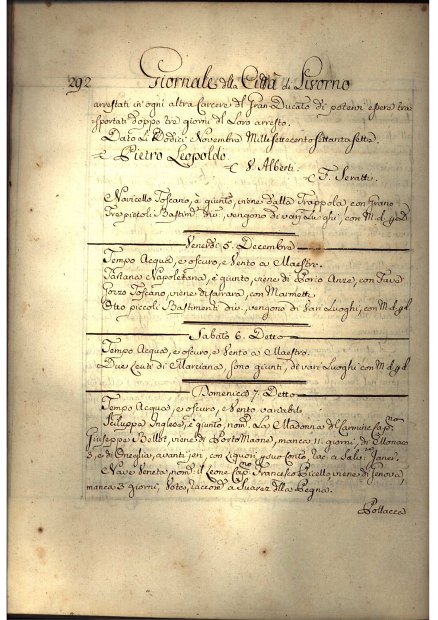 292 Giornale della Città di Livorno
arrestati in ogni altra Carcere del Gran Ducato di potervi essere tra
sportati doppo tre giorni del Loro arresto.
Dato Li Dodici Novembre Millesettecentosettantasette.
Pietro Leopoldo.
V. Alberti.
F. Seratti.
Navicello Toscano, è giunto, viene dalla Trappola con Grano
Tre piccoli Bastim.ti div. vengono di vari Luoghi, con M. d.
Venerdì 5. Decembre
Tempo Acqua, e oscuro, e Vento a Maestro.
Tartana Napoletana, è giunto, viene di Porto Anzo, con Fava
Gozzo Toscano, viene di Carrara, con Marmetti
Otto piccoli Bastimenti div. vengono di Vari Luoghi, con M. d.
Sabato 6. Detto
Tempo Acqua, e oscuro, e Vento a Maestro.
Due Leuti di Marciana, sono giunti, di vari Luoghi con M. d.
Domenica 7. Detto
Tempo Acqua, e oscuro, e Vento variabile
Sciluppa Inglese, è giunto, nom. La Madonna del Carmine Cap.no
Giuseppe viene di Porto Maone, manca 11. giorni, di Monaco
3, e di Oneglia, avanti jeri, con Liquori
Nave Veneta, nom. il Leone Cap.no Francesco viene di Genova,
manca 3 giorni, Voto, a
Pollacca